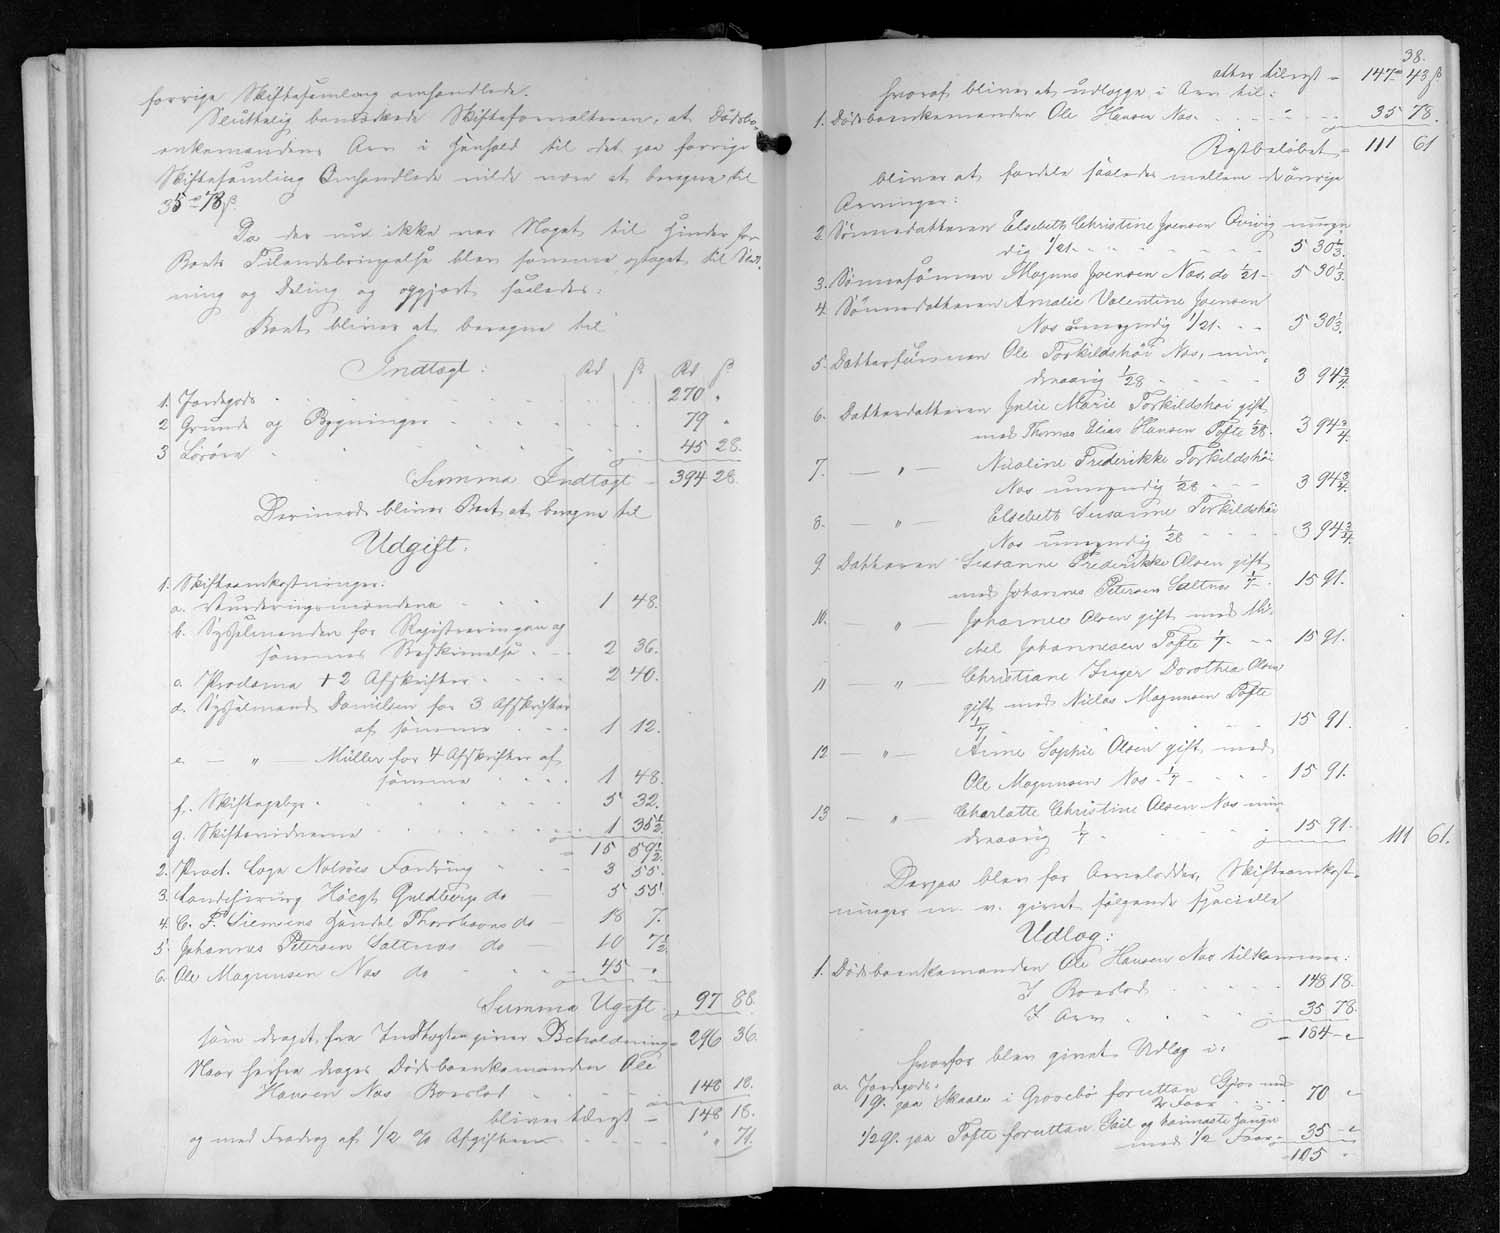 forrige Skiftesamling omhandlede.
Sluttelig bemærkede Skifteforvalteren, at Dødsbo-
enkemandens Arv i Henhold til det paa forrige
Skiftesamling Omhandlede vilde være at beregne til
35 rd 78 ß.
Da der nu ikke var Noget til Hinder for
Boets Tilendebringelse blev samme optaget til Slut-
ning og Deling og opgjort saaledes:
Boet bliver at beregne til
Indtægt: Rd ß Rd ß
1. Jordegods 270 "
2 Grunde og Bygninger 79 "
3 Løsøre 45 28.
Summa Indtægt 394 28.
Derimod bliver Boet at beregne til
Udgift.
1. Skifteomkostninger:
a. Vurderingsmændene 1 48.
b. Sysselmanden for Registreringen og
sammes Beskrivelse 2 36.
c. Proclama + 2 Afskrifter 2 40.
d. Sysselmand Danielsen for 3 Afskrifter
af samme 1 12.
e. — " — Müller for 4 Afskrifter af
samme 1 48.
f. Skiftegebyr 5 32.
g. Skiftevidnerne 1 35 1/2
15 59 1/2
2. Proct. Loge Nolsöes Fordring 3 55.
3. Landchirurg Höegh Guldberg do 5 55.
4. C. F. Siemsens Handel Thorshavns do 18 7.
5. Johannes Petersen Saltnæs do 10 7 1/2
6. Ole Magnusen Næs do 45 "
Summa Ugift 97 88.
som draget fra Indtægten giver Beholdning 296 36.
Naar herfra drages Dødsboenkemanden Ole
Hansen Næs Boeslod 148 18.
bliver tilrest 148 18.
og med Fradrag af 1/2 % Afgiften " 71.
38.
atter tilrest — 147 rd 43 ß
hvoraf bliver at udlægge i Arv til:
1. Dødsboenkemanden Ole Hansen Næs 35 78.
Restbeløbet — 111 61
bliver at fordele saaledes mellem de øvrige
Arvinger:
2. Sønnedatteren Elsebeth Christine Joensen Qvivig umyn-
dig 1/21 5 30 1/3.
3. Sønnesønnen Magnus Joensen Næs, do 1/21 5 30 1/3.
4. Sønnedatteren Amalie Valentine Joensen
Næs umyndig 1/21 5 30 1/3.
5. Dattersønnen Ole Torkildshöi Næs, min-
dreaarig 1/28 3 94 3/4.
6. Datterdatteren Julie Marie Torkildshöi gift
med Thomas Elias Hansen Tofte 1/28 3 94 3/4.
7. — " — Nicoline Frederikke Torkildshöi
Næs umyndig 1/28 3 94 3/4.
8. — " — Elsebeth Susanne Torkildshöi
Næs umyndig 1/28 3 94 3/4.
9. Datteren Sussanne Frederikke Olsen gift
med Johannes Petersen Saltnæs 1/7 15 91.
10. — " — Johanne Olsen gift med Mi-
chel Johannesen Tofte 1/7 15 91.
11 — " — Christiane Inger Dorothea Olsen
gift med Niclas Magnusen Tofte
1/7 15 91.
12 — " — Anne Sophie Olsen gift med
Ole Magnusen Næs 1/7 15 91.
13 — " — Charlotte Christine Olsen Næs min-
dreaarig 1/7 15 91. 111 61.
Derpaa blev for Arvelodder, Skifteomkost-
ninger m. v. givet følgende specielle
Udlæg:
1. Dødsboenkemanden Ole Hansen Næs tilkommer:
I Boeslod 148 18.
I Arv 35 78.
184 "
hvorfor blev givet Udlæg i:
a. Jordegods:
1 gl. paa Skaale i Grovebö foruden
2 Faar 70 "
1/2 gl. paa Tofte foruden
med 1/2 Faar 35 "
105 "